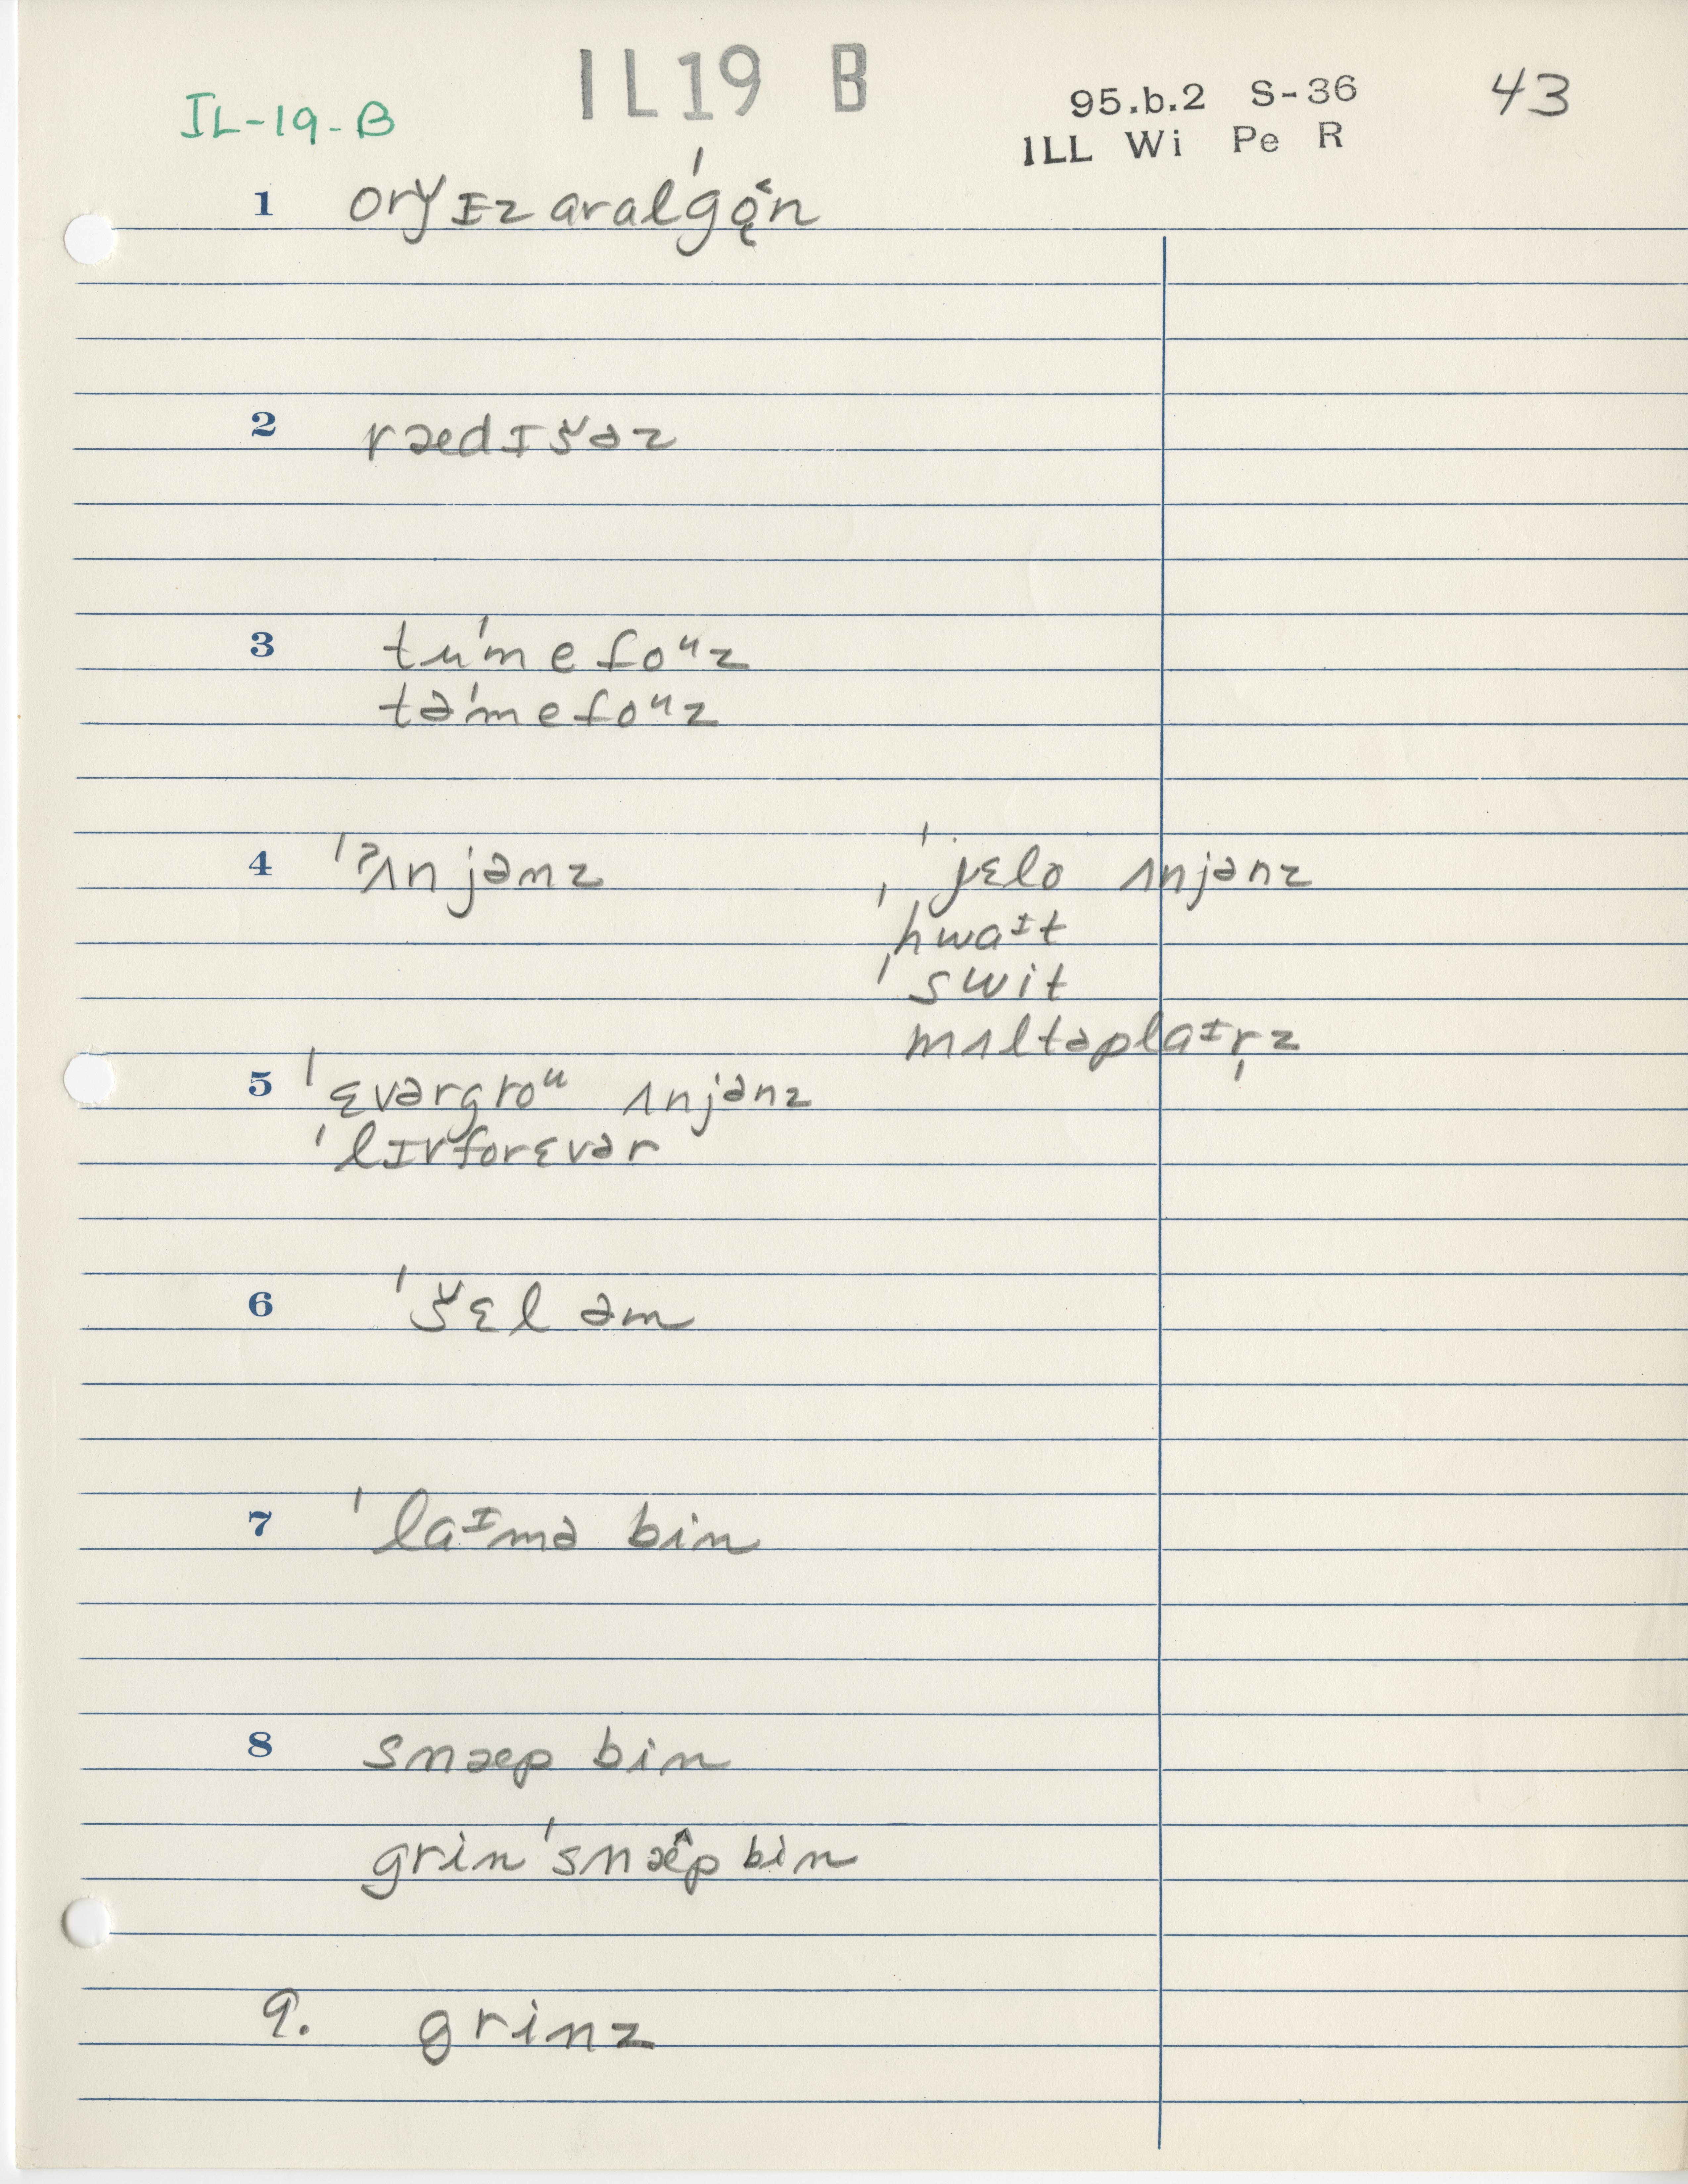 IL19 B
IL-19-B
95.b.2 S-36
ILL Wi Pe R
43
1 orǰɪz aral ˈgɒ̨˂n
2 rædɪšəz
3 tuˈmefoᵘz
təˈmefoᵘz
4 ˈʔʌnjənz ˈjɛlo ʌnjənz
ˈhwaᶦt
ˈswit
mʌltəplaᶦr̩z
5 ˈɛvərgroᵘ ʌnjənz
ˈlɪvforɛvər
6 ˈšɛl əm
7 ˈlaᶦmə bin
8 snæp bin
grinˈsnæ˄p bin
9. grinz